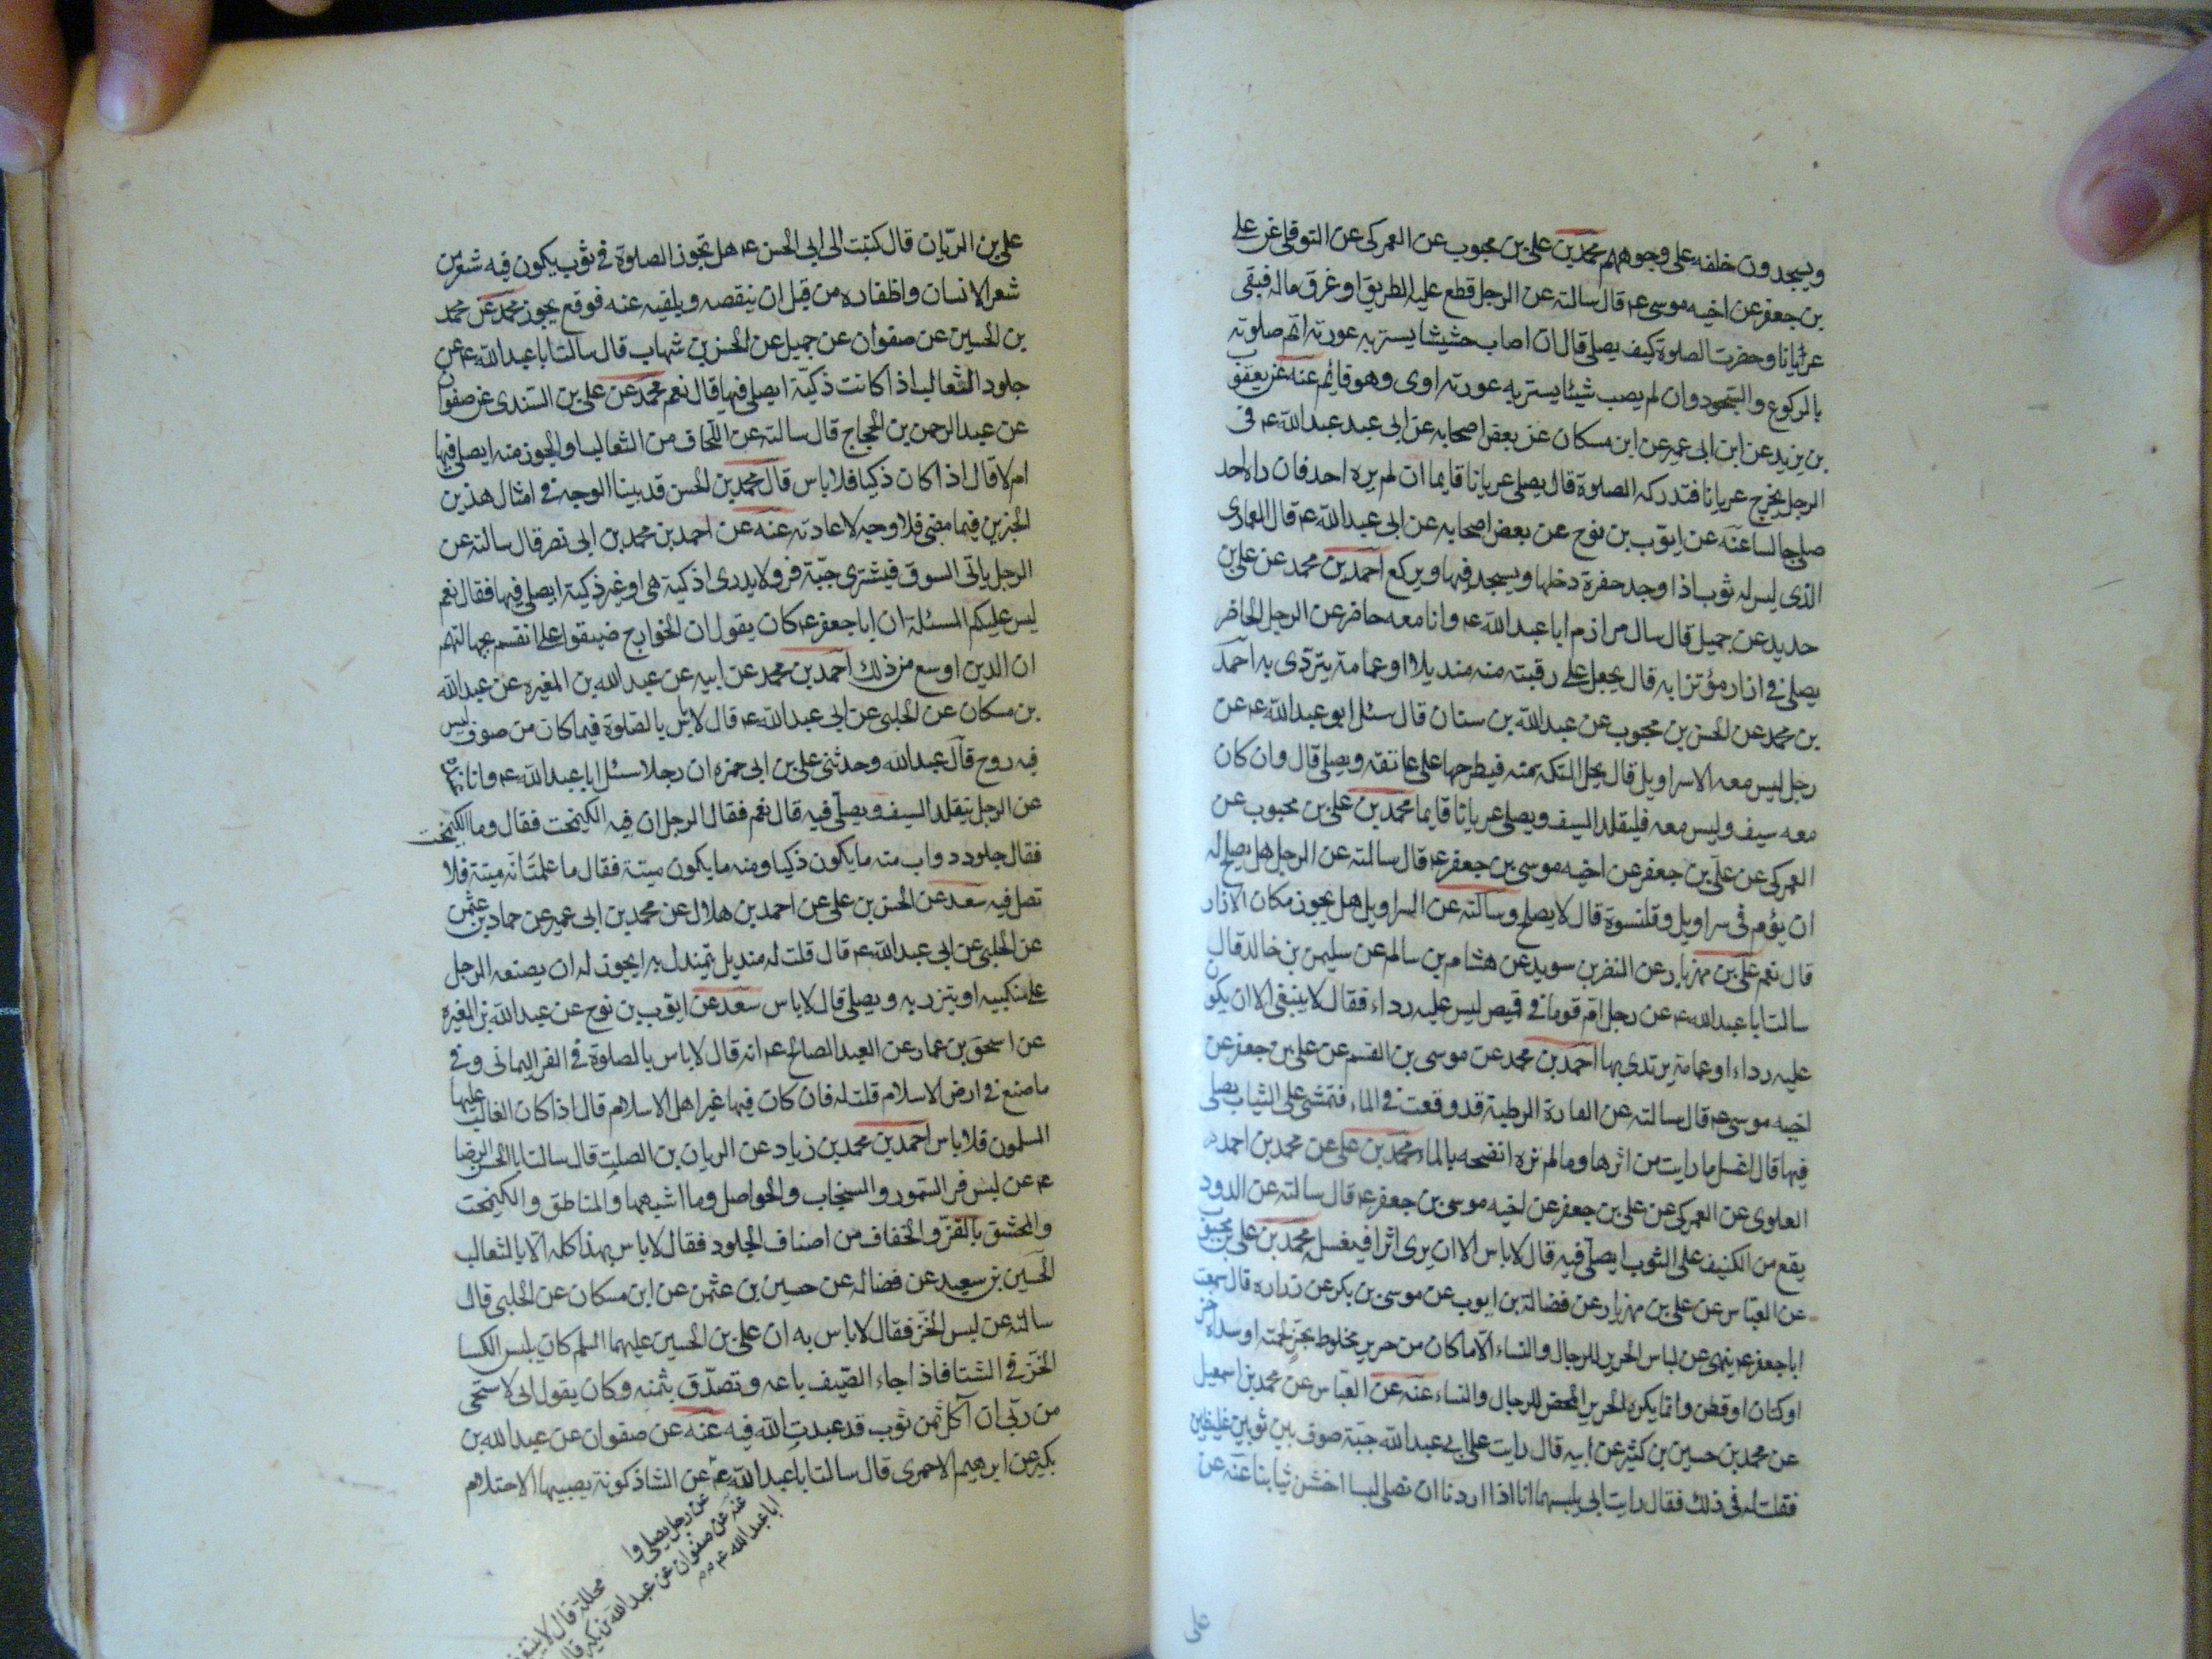 ويسجدون خلفه على وجوههم محمد بن علي بن محبوب عن العمركي عن التوفلي عن علي
بن جعفر عن اخيه موسى ع قال سالته عن الرجل قطع عليه الطريق او غرق ماله فبقى
عريانا وحضرت الصلوة كيف يصلى قال ان اصاب حشيشا يستر به عورته اتم صلوته
بالركوع والسجود وان لم يصب شيئا يستر به عورته اومى وهو قائم عنه عن يعقوب
بن يزيد عن ابن ابي عمير عن ابن مسكان عن بعض اصحابه عن ابى عبد عبد الله ع فى
الرجل يخرج عريانا فتدركه الصلوة قال يصلى عريانا قايما ان لم يره احد فان راه احد
صلى جالسا عنه عن ايوب بن نوح عن بعض اصحابه عن ابى عبد الله ع قال العارى
الذى ليس له ثوب اذا وجد حفرة دخلها ويسجد فيها ويركع احمد بن محمد عن على بن
حديد عن جميل قال سال مرازم ابا عبد الله ع وانا معه حاضر عن الرجل الحاضر
يصلى في ازار مؤتزرا به قال يجعل على رقبته منه منديلا او عمامة يتردى به احمد
بن محمد عن الحسن بن محبوب عن عبد الله بن سنان قال سئل ابو عبد الله ع عن
رجل ليس معه الا سراويل قال يحل التكه منه فيطرحها على عاتقه ويصلى قال وان كان
معه سيف وليس معه فليقلد السيف ويصلى عريانا قايما محمد بن على بن محبوب عن
العمركى عن على بن جعفر عن اخيه موسى بن جعفر ع قال سالته عن الرجل هل يصلح له
ان يؤم فى سراويل وقلنسوة قال لا يصلح وسالته عن السراويل هل يجوز مكان الازار
قال نعم على بن مهزيار عن النضر بن سويد عن هشام بن سالم عن سليمن بن خالد قال
سالت ابا عبد الله ع عن رجل ام قوما في قميص ليس عليه رداء فقال لا ينبغى الا ان يكون
عليه رداء او عمامة يرتدى بها احمد بن محمد عن موسى بن القسم عن على بن جعفر عن
اخيه موسى ع قال سالته عن الفارة الرطبة قد وقعت في الماء فتمشى على الثياب يصلى
فيها قال اغسل ما رايت من اثرها وما لم تره انضحه بالماء محمد بن على عن محمد بن احمد
العلوى عن العمركى عن على بن جعفر عن اخيه موسى بن جعفر ع قال سالته عن الدود
يقع من الكنيف على الثوب ايصلى فيه قال لا باس الا ان يرى اثرا فيغسل محمد بن على بن محبوب
عن العباس عن على بن مهزيار عن فضالة بن ايوب عن موسى بن بكر عن زراره قال سمعت
ابا جعفر ع ينهى عن لباس الحرير للرجال والنساء الا ما كان من حرير مخلوط بخز لحمته او سداه خز
او كتان او قطن وانما يكره الحرير المحض للرجال والنساء عنه عن العباس عن محمد بن اسمعيل
عن محمد بن حسين بن كثير عن ابيه قال رايت على ابي عبد الله جبة صوف بين ثوبين غليظين
فقلت له فى ذلك فقال رايت ابى يلبسهما انا اذا اردنا ان نصلى لبسنا اخشن ثيابنا عنه عن
على
على بن الريان قال كتبت الى ابى الحسن ع هل تجوز الصلوة في ثوب يكون فيه شعر من
شعر الانسان واظفاره من قبل ان ينقصه ويلقيه عنه فوقع يجوز محمد عن محمد
بن الحسين عن صفوان عن جميل عن الحسن بن شهاب قال سالت ابا عبد الله ع عن
جلود الثعالب اذا كانت ذكية ايصلى فيها قال نعم محمد عن على بن السندى عن صفوان
عن عبد الرحمن بن الحجاج قال سالته عن اللحاف من الثعالب او الجوز منه ايصلى فيها
ام لا قال اذا كان ذكيا فلا باس قال محمد بن الحسن قد بينا الوجه في امثال هذين
الخبرين فيما مضى فلا وجه لاعادته عنه عن احمد بن محمد بن ابى نصر قال سالته عن
الرجل ياتى السوق فيشترى جبة فرو لا يدرى اذكية هى او غير ذكية ايصلى فيها فقال نعم
ليس عليكم المسئلة ان ابا جعفر ع كان يقول ان الخوارج ضيقوا على انفسهم بجهالتهم
ان الدين اوسع من ذلك احمد بن محمد عن ابيه عن عبد الله بن المغيره عن عبد الله
بن مسكان عن الحلبى عن ابى عبد الله ع قال لا باس بالصلوة فيما كان من صوف ليس
فيه روح قال عبد الله وحدثنى على بن ابى حمزه ان رجلا سئل ابا عبد الله ع وانا عنده
عن الرجل يتقلد السيف ويصلى فيه قال نعم فقال الرجل ان فيه الكيمخت فقال وما الكيمخت
فقال جلود دواب منه ما يكون ذكيا ومنه ما يكون ميتة فقال ما علمت انه ميتة فلا
تصل فيه سعد عن الحسن بن على عن احمد بن هلال عن محمد بن ابى عمير عن حماد بن عثمن
عن الحلبى عن ابى عبد الله ع قال قلت له منديل يتمندل به ايجوز له ان يضعه الرجل
على منكبيه او يتزر به ويصلى قال لا باس سعد عن ايوب بن نوح عن عبد الله بن المغيرة
عن اسحق بن عمار عن العبد الصالح ع انه قال لا باس بالصلوة في الفر اليمانى وفى
ما صنع في ارض الاسلام قلت له فان كان فيها غير اهل الاسلام قال اذا كان الغالب عليها
المسلمون فلا باس احمد بن محمد بن زياد عن الريان بن الصلت قال سالت ابا الحسن الرضا
ع عن لبس فر السمور والسنجاب والحواصل وما اشبهها والمناطق والكيمخت
والمحشو بالقز والخفاف من اصناف الجلود فقال لا باس بهذا كله الا بالثعالب
الحسين بن سعيد عن فضاله عن حسين بن عثمن عن ابن مسكان عن الحلبى قال
سالته عن لبس الخز فقال لا باس به ان على بن الحسين عليهما السلم كان يلبس الكسا
الخز في الشتا فاذا جاء الصيف باعه وتصدق بثمنه وكان يقول انى لاستحى
من ربى ان آكل ثمن ثوب قد عبدت الله فيه عنه عن صفوان عن عبد الله بن
بكير عن ابرهيم الاحمرى قال سالت ابا عبد الله ع عن الشاذكونة يصيبها الاحتلام
ابا عبد الله ع
عنه عن صفوان عن عبد الله بن بكير قال
عن رجل يصلى وا
محللة قال لا ينبغى